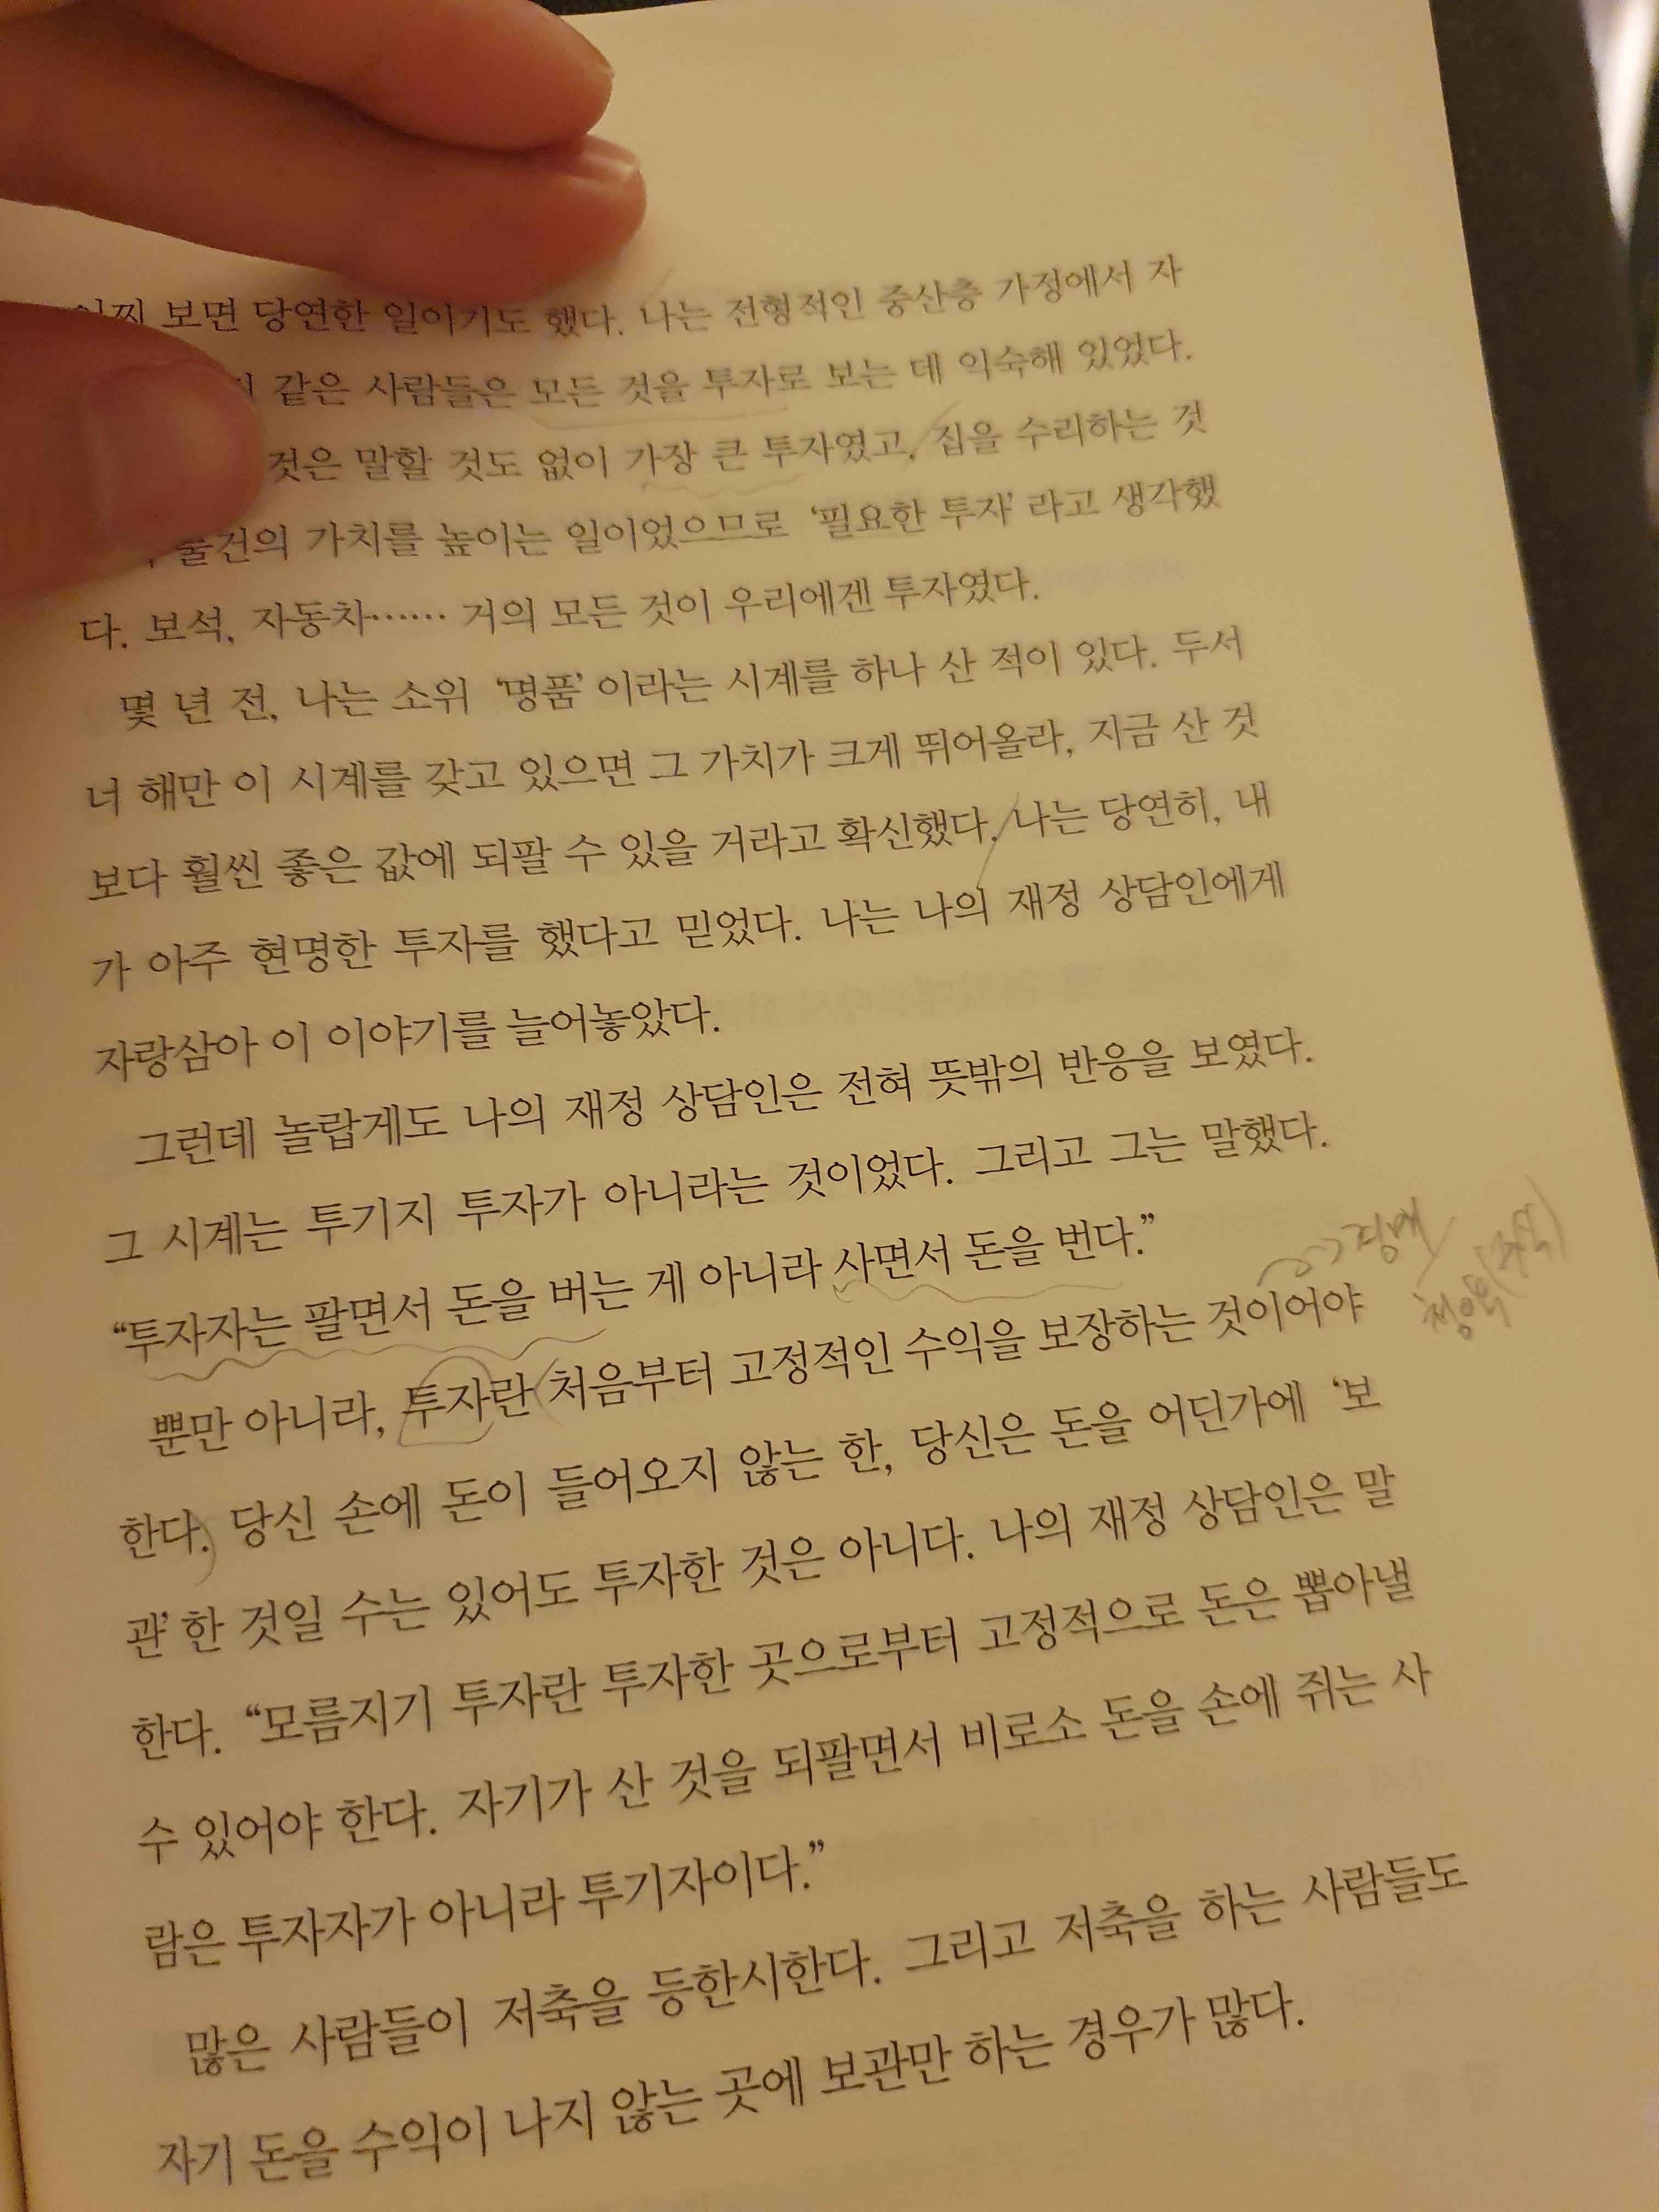 보면 당연한 일이기도 했다. 나는 전형적인 중산층 가정에서 자
같은 사람들은 모든 것을 투자로 보는 데 익숙해 있었다.
것은 말할 것도 없이 가장 큰 투자였고, 집을 수리하는 것
물건의 가치를 높이는 일이었으므로 ‘필요한 투자’ 라고 생각했
다. 보석, 자동차…… 거의 모든 것이 우리에겐 투자였다.
몇 년 전, 나는 소위 ‘명품’ 이라는 시계를 하나 산 적이 있다. 두서
너 해만 이 시계를 갖고 있으면 그 가치가 크게 뛰어올라, 지금 산 것
보다 훨씬 좋은 값에 되팔 수 있을 거라고 확신했다. 나는 당연히, 내
가 아주 현명한 투자를 했다고 믿었다. 나는 나의 재정 상담인에게
자랑삼아 이 이야기를 늘어놓았다.
그런데 놀랍게도 나의 재정 상담인은 전혀 뜻밖의 반응을 보였다.
그 시계는 투기지 투자가 아니라는 것이었다. 그리고 그는 말했다.
“투자자는 팔면서 돈을 버는 게 아니라 사면서 돈을 번다.”
뿐만 아니라, 투자란 처음부터 고정적인 수익을 보장하는 것이어야
한다. 당신 손에 돈이 들어오지 않는 한, 당신은 돈을 어딘가에 ‘보
관’ 한 것일 수는 있어도 투자한 것은 아니다. 나의 재정 상담인은 말
한다. “모름지기 투자란 투자한 곳으로부터 고정적으로 돈은 뽑아낼
수 있어야 한다. 자기가 산 것을 되팔면서 비로소 돈을 손에 쥐는 사
람은 투자자가 아니라 투기자이다.”
많은 사람들이 저축을 등한시한다. 그리고 저축을 하는 사람들도
자기 돈을 수익이 나지 않는 곳에 보관만 하는 경우가 많다.